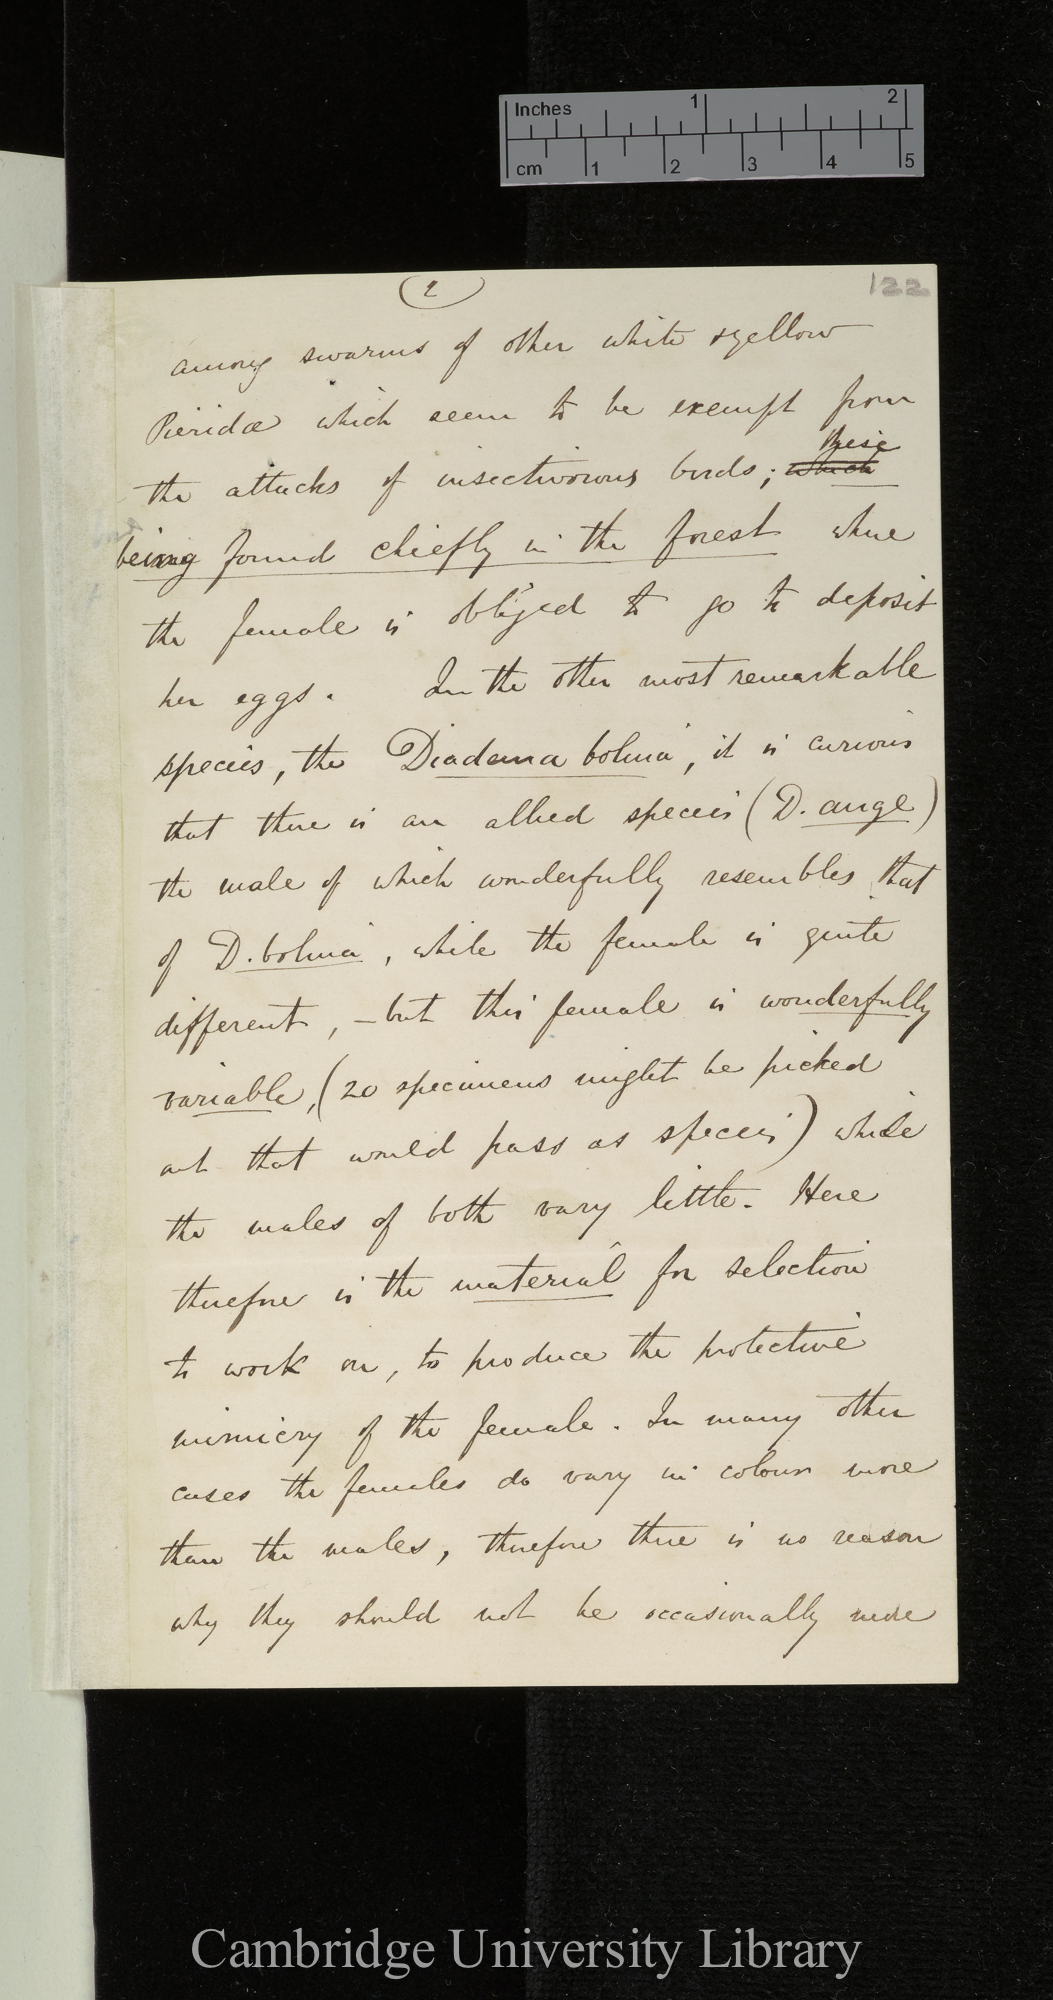 Inches 1 2
cm 1 2 3 4 5
(2)
122
among swarms of other white & yellow
Pieridæ which seem to be exempt from
these
the attacks of insectivorous birds; which
being found chiefly in the forest where
the female is obliged to go to deposit
her eggs. In the other most remarkable
species, the Diadema bolina, it is curious
that there is an allied species (D. auge)
the male of which wonderfully resembles that
of D. bolina, while the female is quite
different, – but this female is wonderfully
variable, (20 specimens might be picked
out that would pass as species) while
the males of both vary little. Here
therefore is the material for selection
to work on, to produce the protective
mimicry of the female. In many other
cases the females do vary in colour more
than the males, therefore there is no reason
why they should not be occasionally more
Cambridge University Library